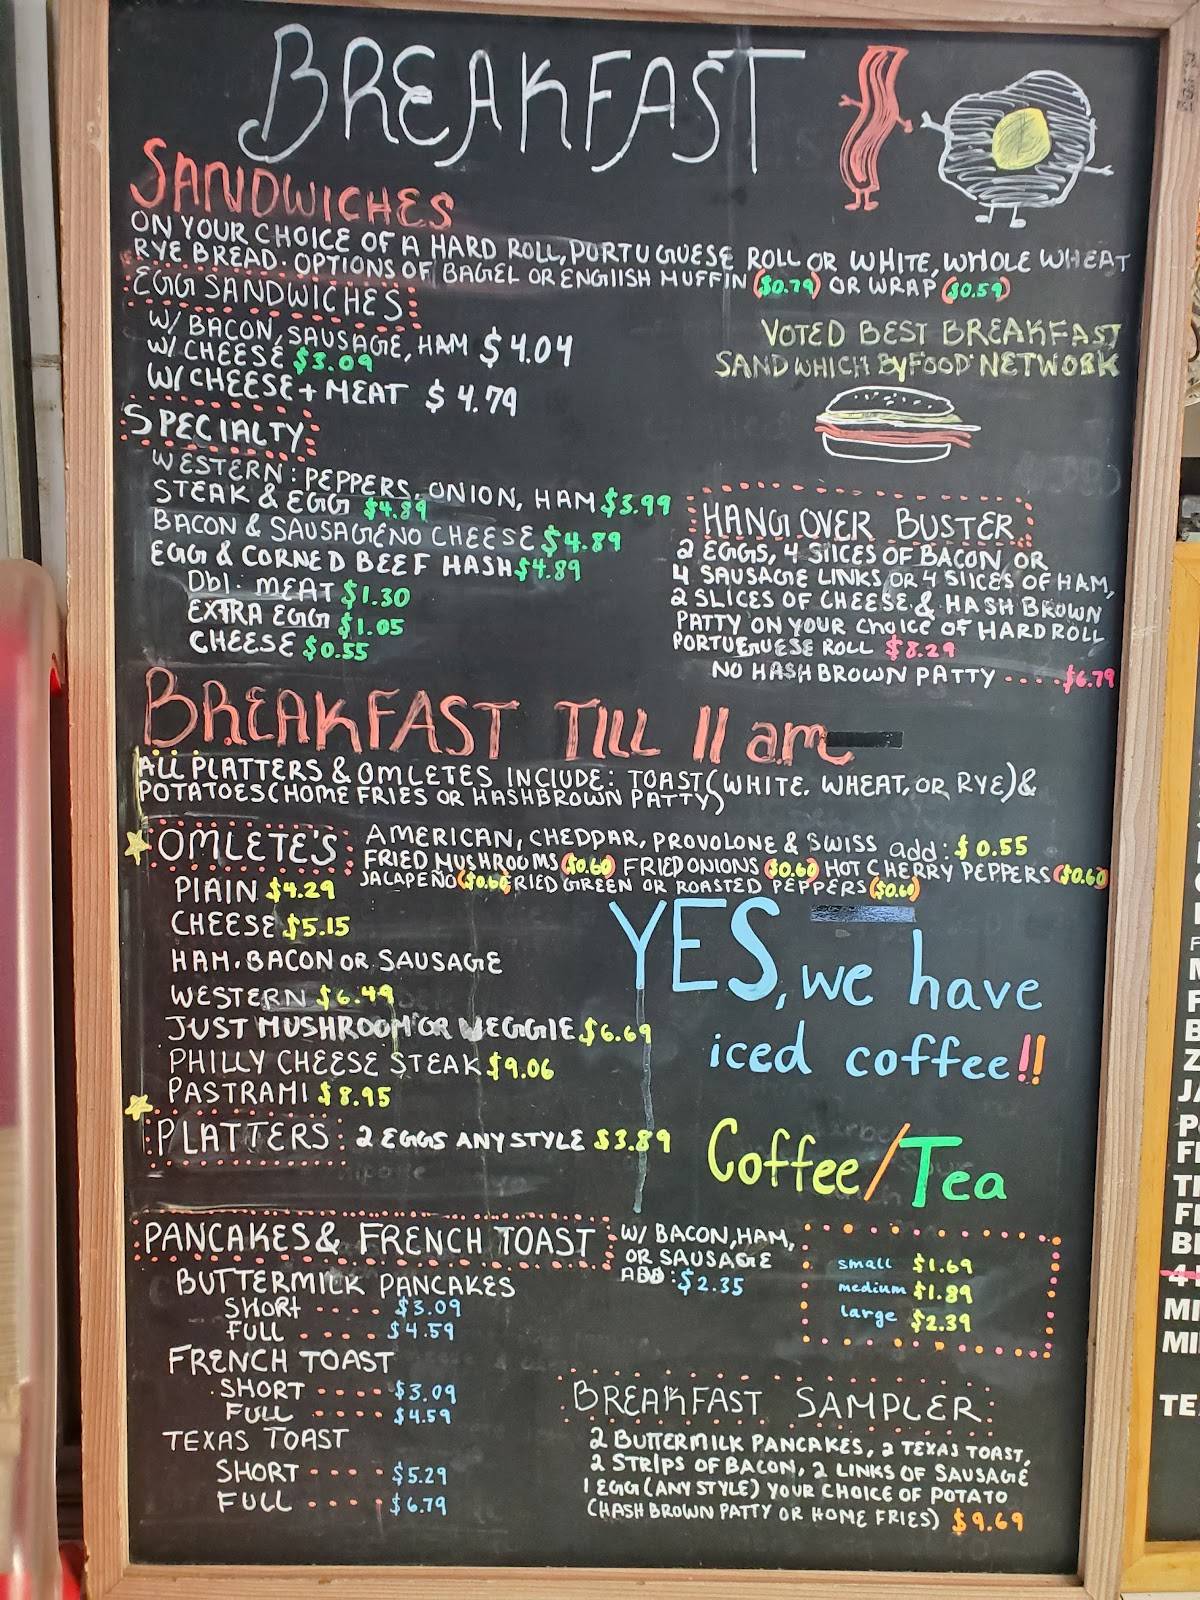 BREAKFAST
SANDWICHES
ON YOUR CHOICE OF A HARD ROLL, PORTUGUESE ROLL OR WHITE, WHOLE WHEAT
RYE BREAD. OPTIONS OF BAGEL OR ENGlISH MUFFIN ($0.79) OR WRAP ($0.59)
EGG SANDWICHES:
W/ BACON, SAUSAGE, HAM $4.04
W/ CHEESE $3.09
W/ CHEESE + MEAT $4.79
VOTED BEST BREAKFAST
SANDWHICH By FOOD NETWORK
SPECIALTY:
WESTERN: PEPPERS, ONION, HAM $3.99
STEAK & EGG $4.89
BACON & SAUSAGE NO CHEESE $4.89
EGG & CORNED BEEF HASH $4.89
Dbl. MEAT $1.30
EXTRA EGG $1.05
CHEESE $0.55
HANGOVER BUSTER
2 EGGS, 4 SlICES OF BACON OR
4 SAUSAGE LINKS OR 4 SlICES OF HAM,
2 SLICES OF CHEESE & HASH BROWN
PATTY ON YOUR CHOICE OF HARD ROLL
PORTUGUESE ROLL $8.29
NO HASH BROWN PATTY ---- $6.79
BREAKFAST TILL 11 am
ALL PLATTERS & OMLETES INCLUDE: TOAST (WHITE, WHEAT, OR RYE) &
POTATOES (HOME FRIES OR HASHBROWN PATTY)
OMLETE'S:
AMERICAN, CHEDDAR, PROVOLONE & SWISS add: $0.55
FRIED MUSHROOMS ($0.60) FRIED ONIONS ($0.60) HOT CHERRY PEPPERS ($0.60)
JALAPEÑO ($0.60) FRIED GREEN OR ROASTED PEPPERS ($0.60)
PlAIN $4.29
CHEESE $5.15
HAM, BACON OR SAUSAGE
WESTERN $6.49
JUST MUSHROOM OR VEGGIE $6.69
PHILLY CHEESE STEAK $9.06
PASTRAMI $8.95
YES, we have
iced coffee!!
PLATTERS: 2 EGGS ANY STYLE $3.89
Coffee/Tea
small $1.69
medium $1.89
large $2.39
PANCAKES & FRENCH TOAST:
W/ BACON, HAM,
OR SAUSAGE
ADD: $2.35
BUTTERMILK PANCAKES
SHORT ---- $3.09
FULL .... $4.59
FRENCH TOAST
SHORT ---- $3.09
FULL ---- $4.59
TEXAS TOAST
SHORT ---- $5.29
FULL ---- $6.79
BREAKFAST SAMPLER:
2 BUTTERMILK PANCAKES, 2 TEXAS TOAST,
2 STRIPS OF BACON, 2 LINKS OF SAUSAGE
1 EGG (ANY STYLE) YOUR CHOICE OF POTATO
(HASH BROWN PATTY OR HOME FRIES) $9.69